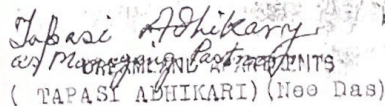 Tapasi Adhikary
as Managing Partner
DREAMLAND APARTMENTS
( TAPASI ADHIKARI) (Nee Das)